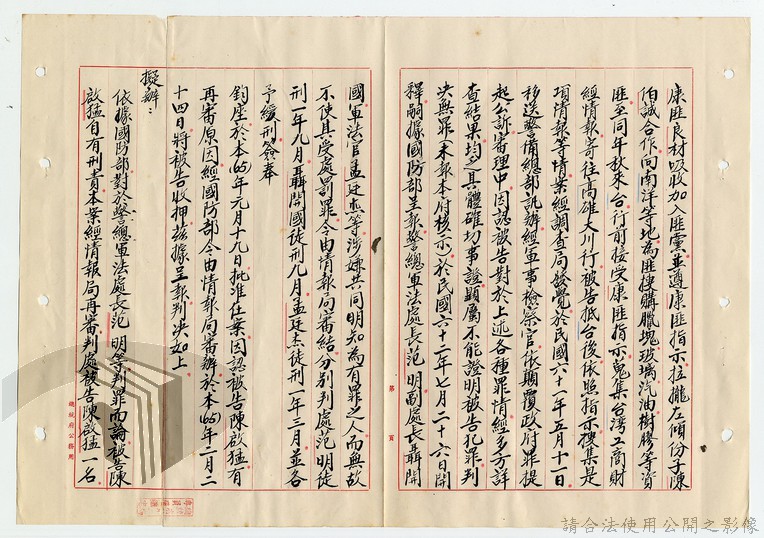 康匪良材吸收加入匪黨並遵康匪指示拉攏左傾份子陳
伯誠合作向南洋等地為匪搜購臘塊玻璃汽油樹膠等資
匪至同年秋來台行前接受康匪指示蒐集台灣工商財
經情報寄往高雄大川行被告抵台後依照指示搜集是
項情報等情案經調查局發覺於民國六十一年五月十一日
移送警備總部訊辦經軍事檢察官依顛覆政府罪提
起公訴審理中因認被告對於上述各種罪情經多方詳
查結果均乏具體確切事證顯屬不能證明被告犯罪判
決無罪(未報本府核示)於民國六十二年七月二十六日開
釋嗣據國防部呈報警總軍法處長范明副處長聶開
國軍法官孟廷杰等涉嫌共同明知為有罪之人而無故
不使其受處罰罪令由情報局審結分別判處范明徒
刑一年九月聶開國徒刑九月孟廷杰徒刑一年三月並各
予緩刑簽奉
鈞座於本(65)年元月十九日批准在案因認被告陳啟猛有
再審原因經國防部令由情報局審辦於本(65)年二月二
十四日將被告收押茲據呈報判決如上
擬辦:
依據國防部對於警總軍法處長范明等判罪而論被告陳
啟猛自有刑責本案經情報局再審判處被告陳啟猛一名
第 頁
總統府公務用
請合法使用公開之影像